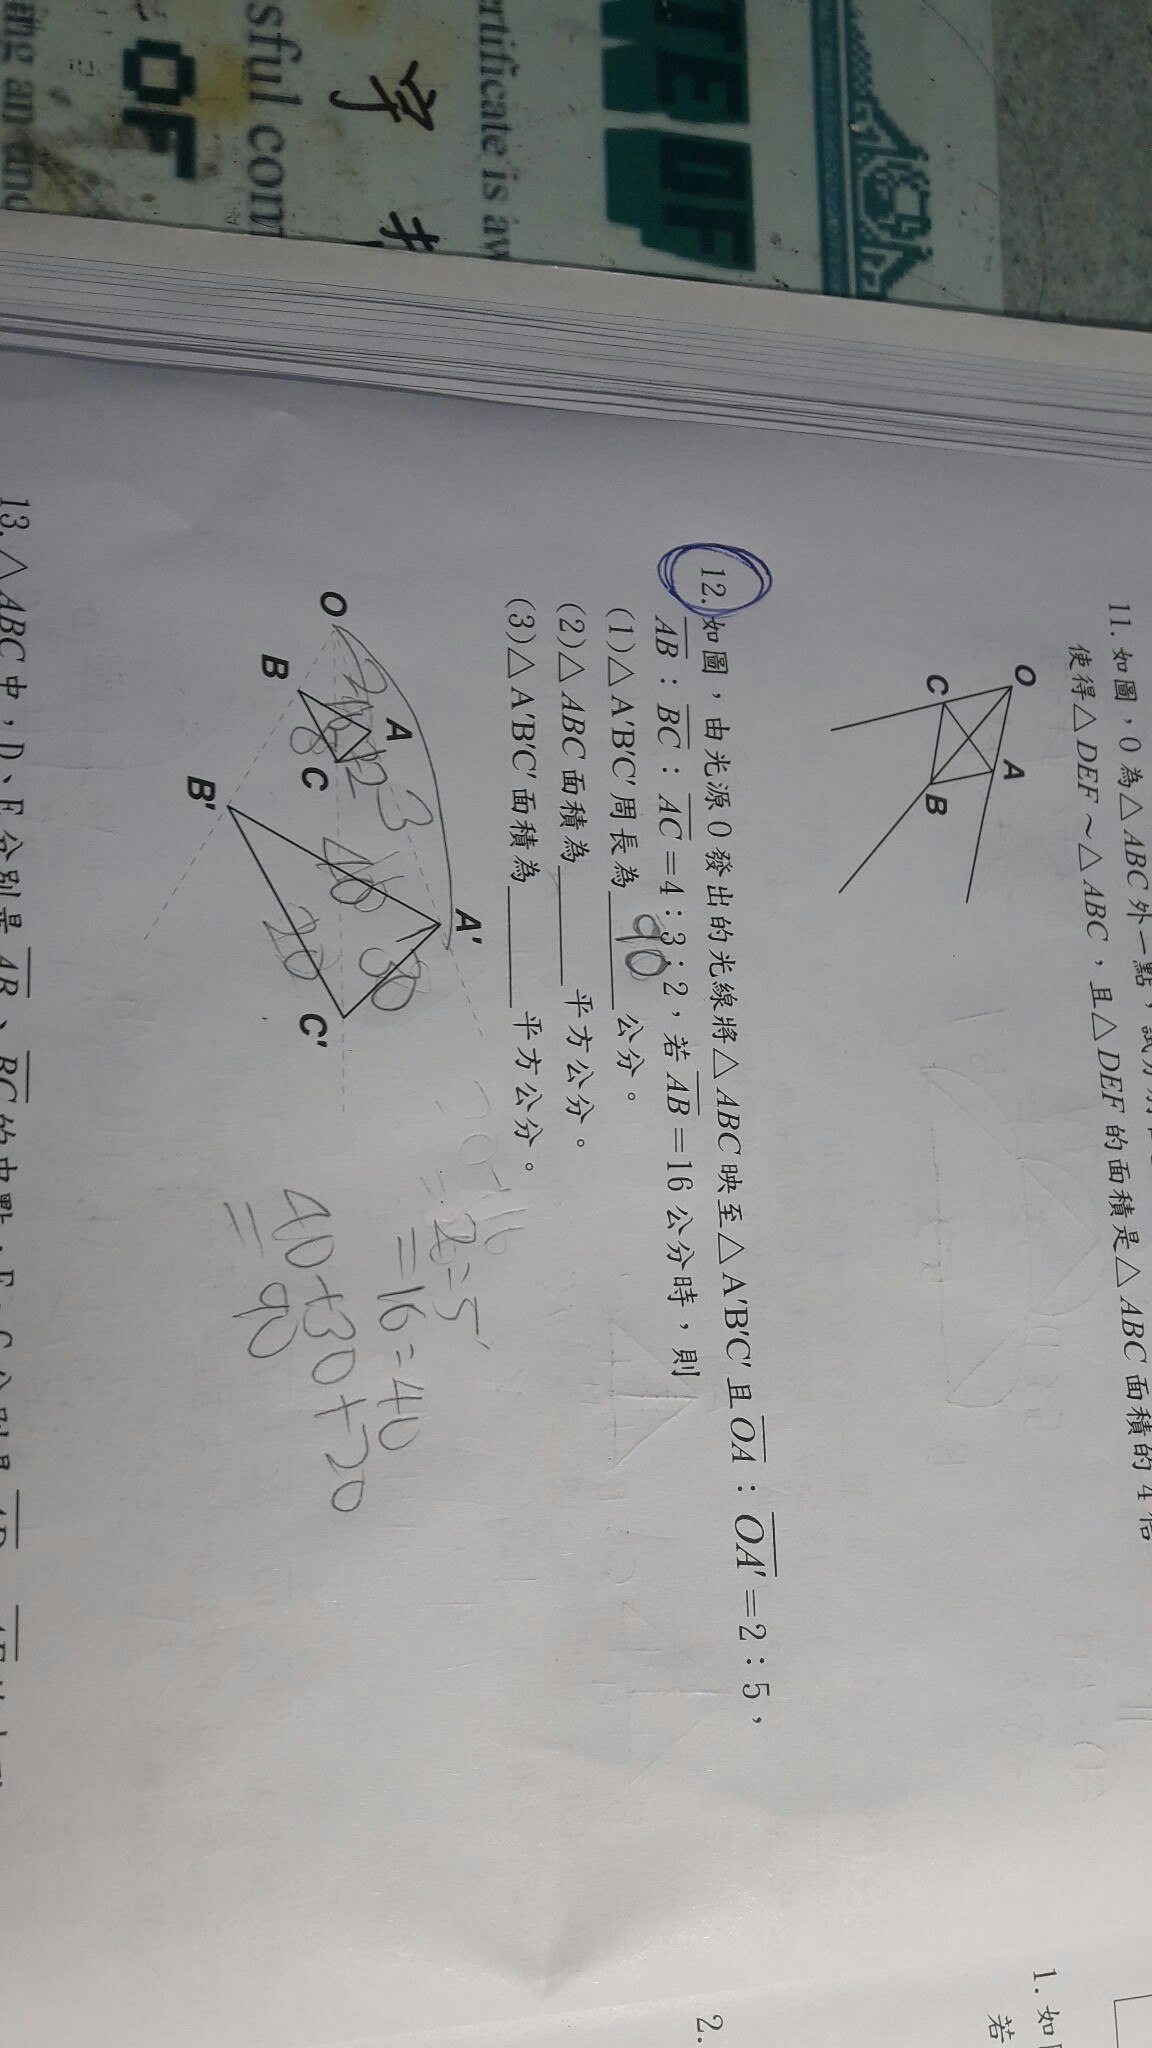 TE OF
ertificate is aw
字
sful com
OF
ing an
11. 如圖，O為△ABC外一點，
使得△DEF～△ABC，且△DEF的面積是△ABC面積的4倍
O
A
C
B
12. 如圖，由光源O發出的光線將△ABC映至△A'B'C'且OA：OA'=2：5，
AB：BC：AC=4：3：2，若AB=16公分時，則
(1)△A'B'C'周長為 90 公分。
(2)△ABC面積為 平方公分。
(3)△A'B'C'面積為 平方公分。
O
A
B
C
A'
B'
C'
3
8
40
30
20
2=5
=16=40
40+30+20
=90
13. △ABC中，D、E分別是AB、BC的中點，F、G分別是
1. 如
若
2.